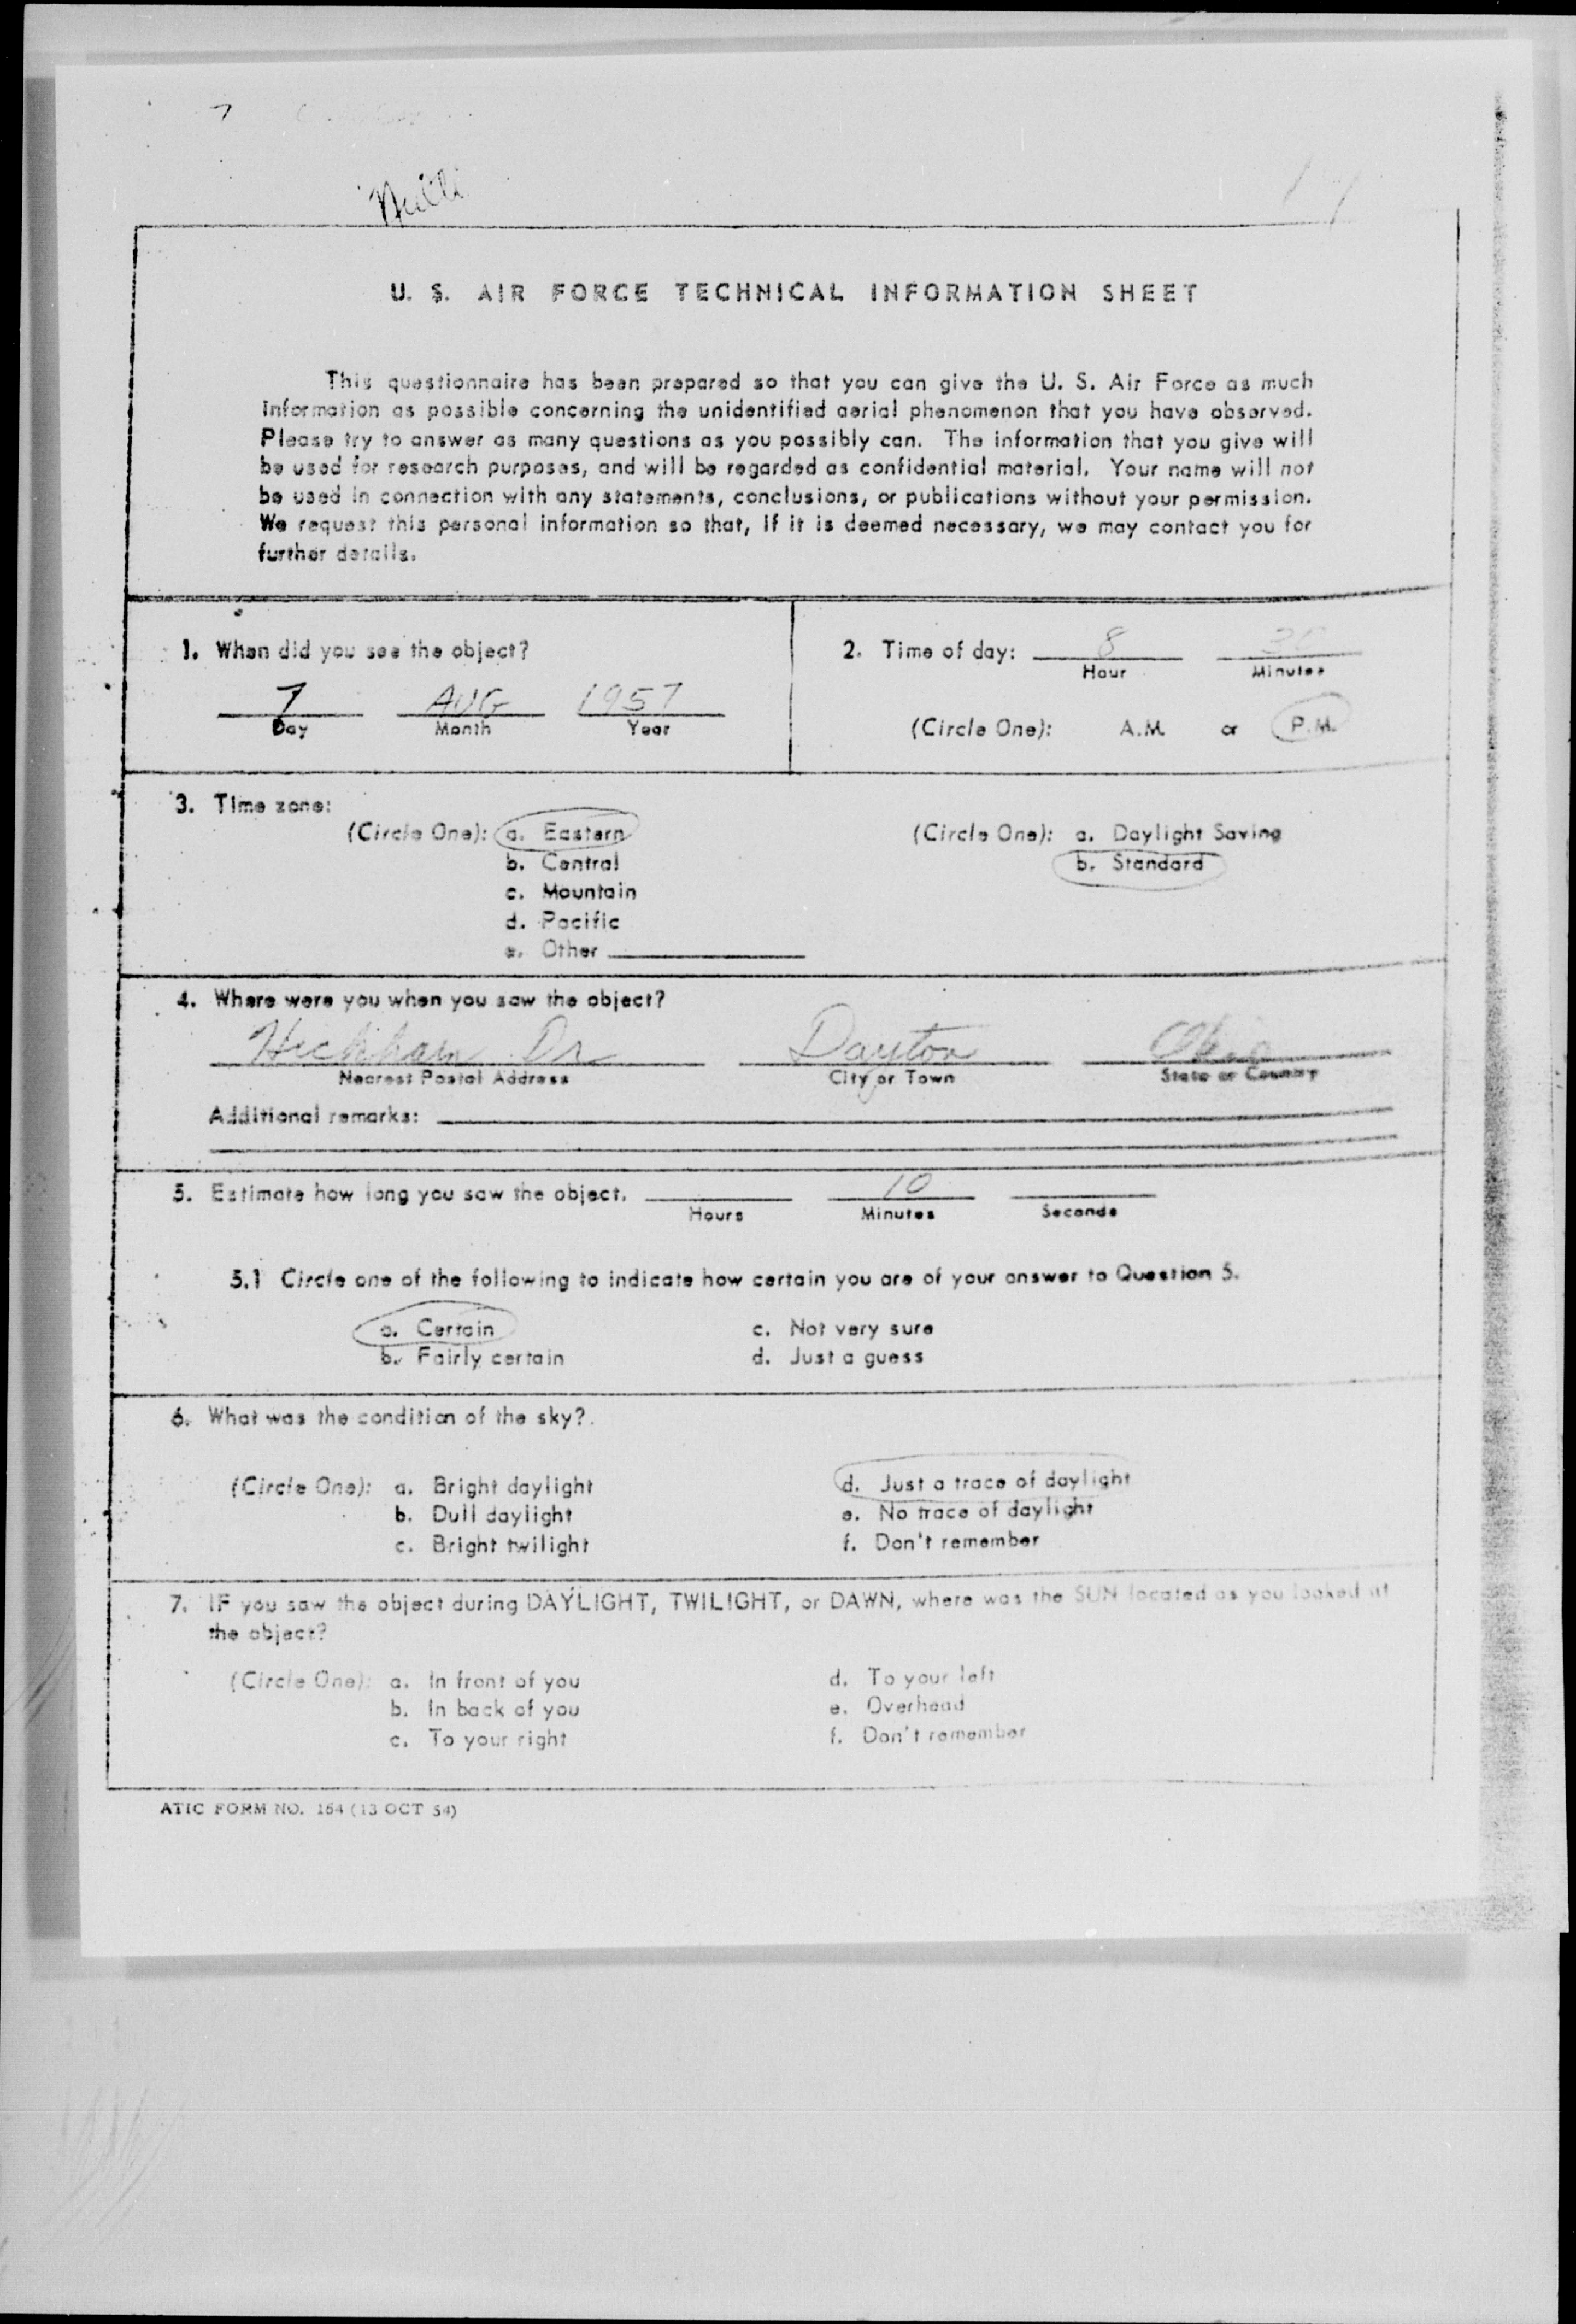 U. S. AIR FORCE TECHNICAL INFORMATION SHEET
This questionnaire has been prepared so that you can give the U. S. Air Force as much
information as possible concerning the unidentified aerial phenomenon that you have observed.
Please try to answer as many questions as you possibly can. The information that you give will
be used for research purposes, and will be regarded as confidential material. Your name will not
be used in connection with any statements, conclusions, or publications without your permission.
We request this personal information so that, if it is deemed necessary, we may contact you for
further details.
1. When did you see the object?
7 AUG 1957
Day Month Year
2. Time of day: 8 30
Hour Minutes
(Circle One): A.M. or P.M.
3. Time zone:
(Circle One): a. Eastern
b. Central
c. Mountain
d. Pacific
e. Other
(Circle One): a. Daylight Saving
b. Standard
4. Where were you when you saw the object?
Dr Dayton Ohio
Nearest Postal Address City or Town State or Country
Additional remarks:
5. Estimate how long you saw the object. 10
Hours Minutes Seconds
5.1 Circle one of the following to indicate how certain you are of your answer to Question 5.
a. Certain
b. Fairly certain
c. Not very sure
d. Just a guess
6. What was the condition of the sky?
(Circle One): a. Bright daylight
b. Dull daylight
c. Bright twilight
d. Just a trace of daylight
e. No trace of daylight
f. Don't remember
7. IF you saw the object during DAYLIGHT, TWILIGHT, or DAWN, where was the SUN located as you looked at
the object?
(Circle One): a. In front of you
b. In back of you
c. To your right
d. To your left
e. Overhead
f. Don't remember
ATIC FORM NO. 164 (13 OCT 54)